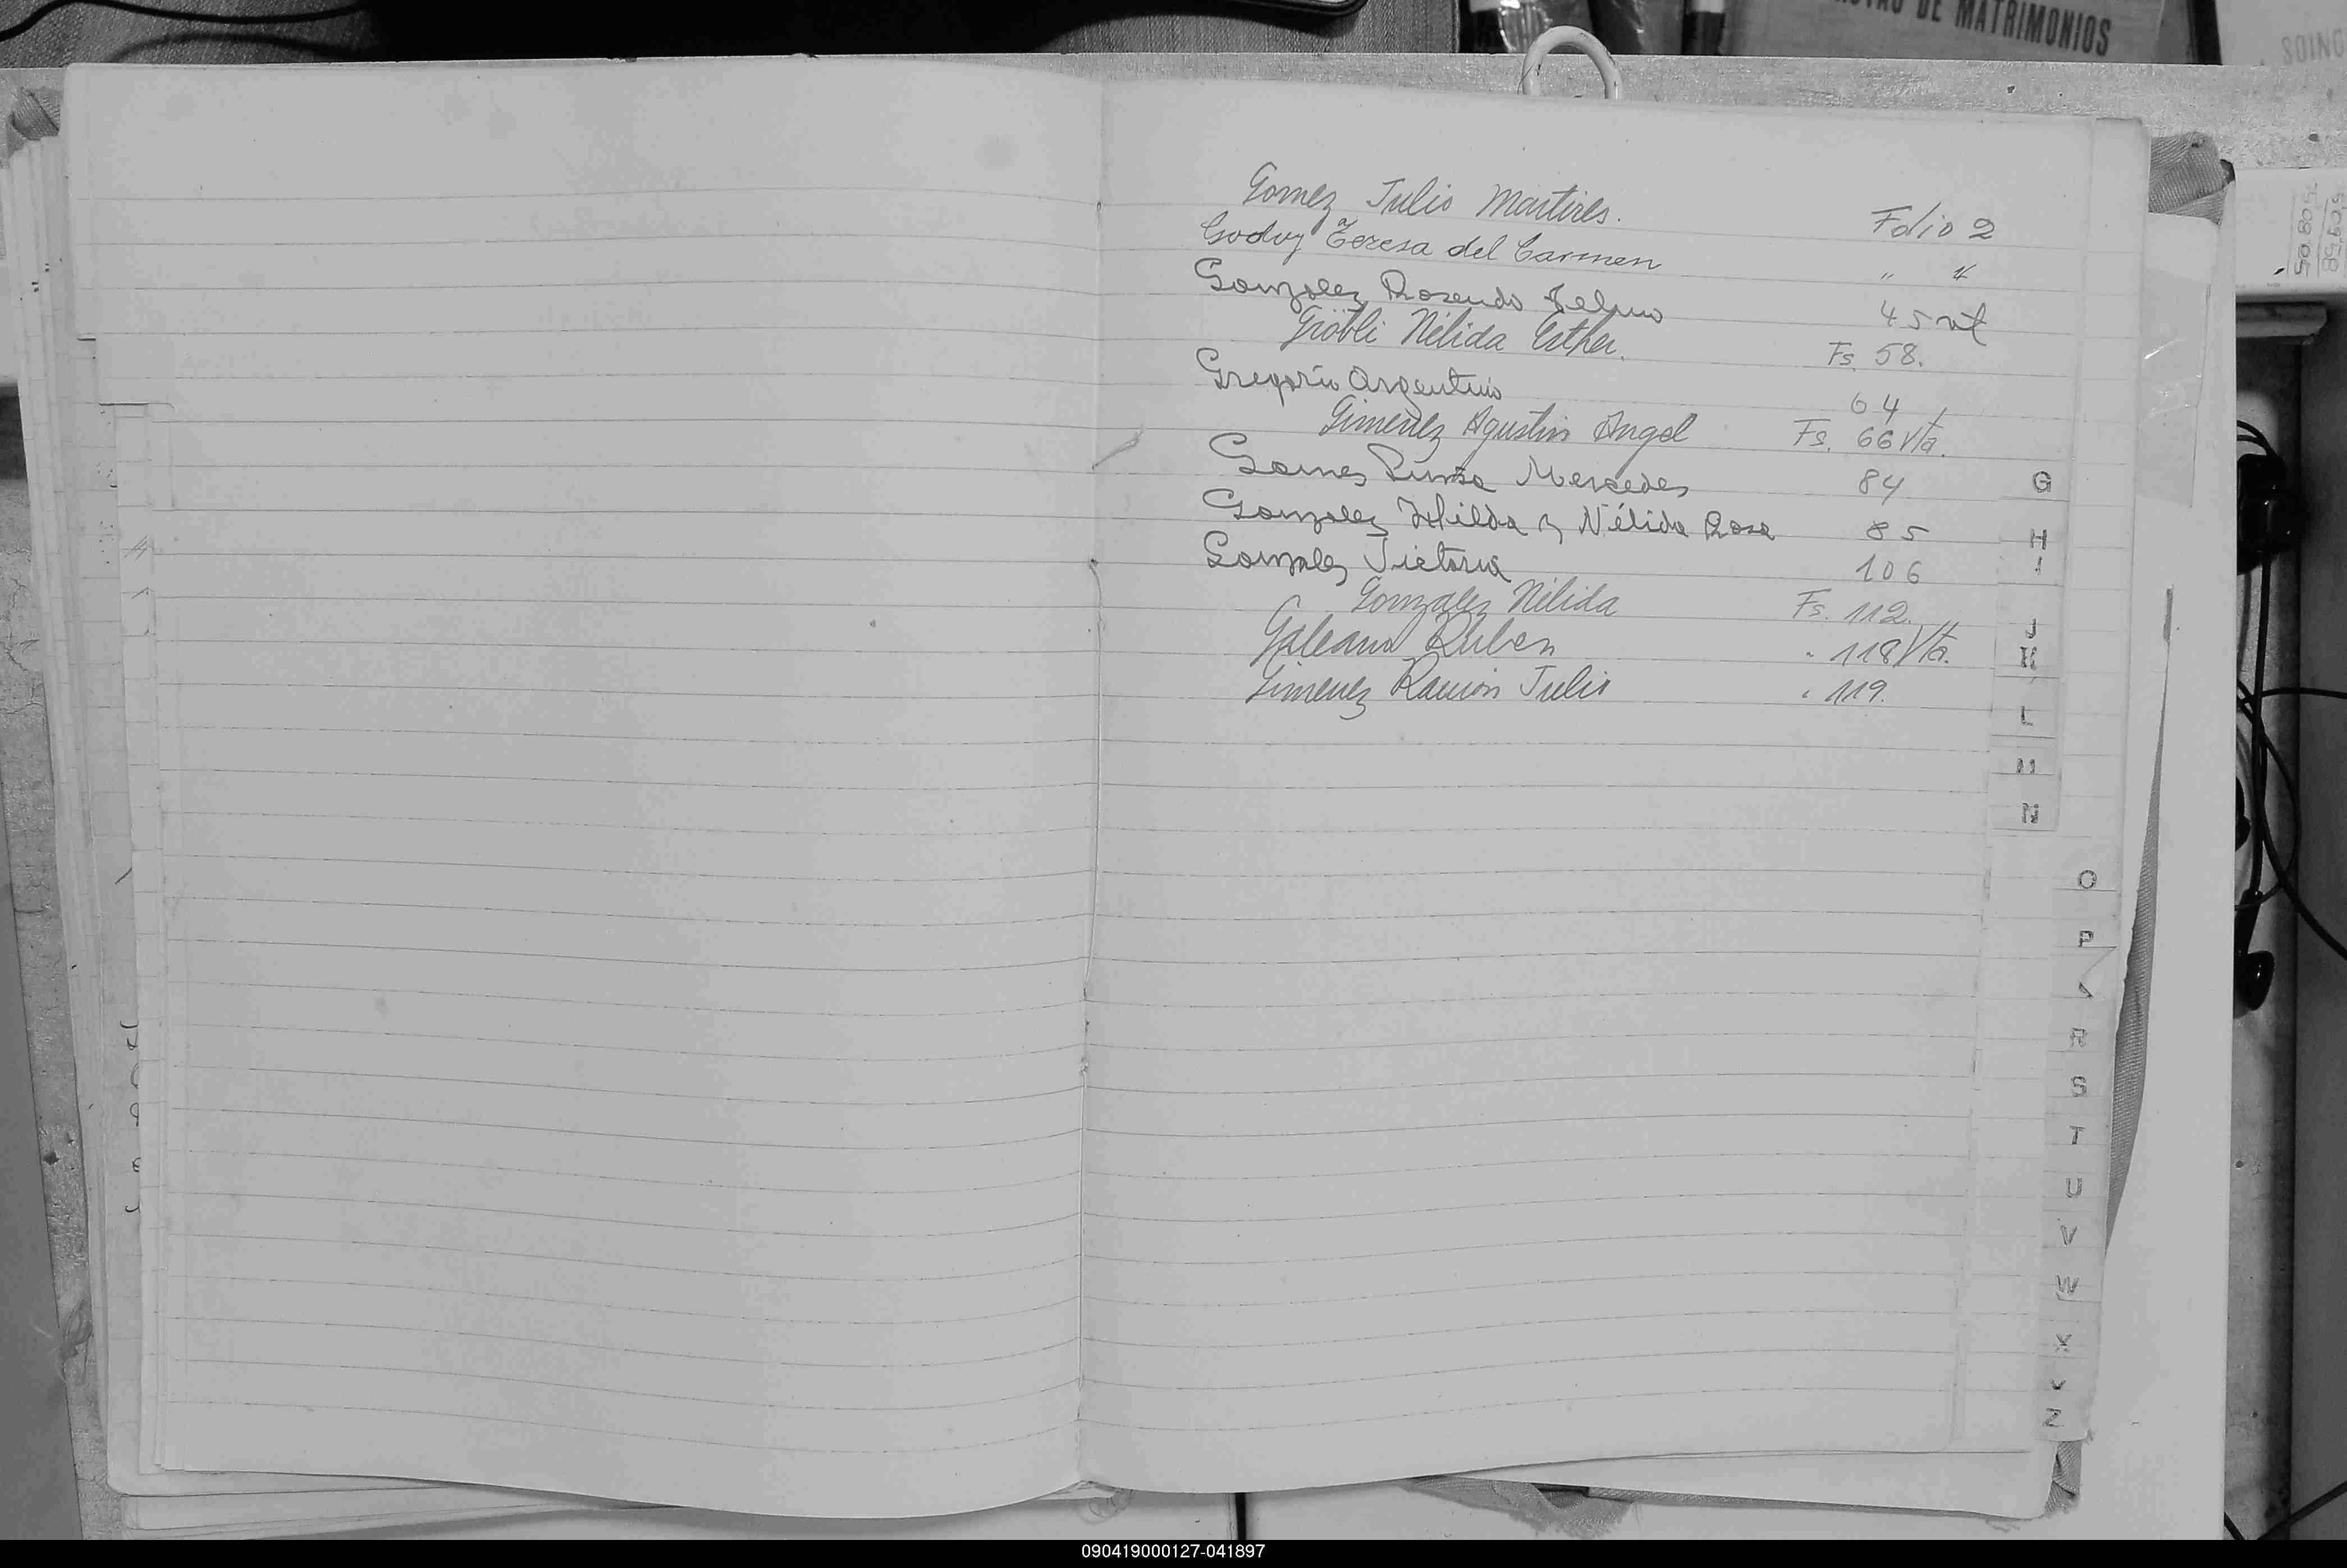 DE MATRIMONIOS
Gomez Julio Martires. Folio 2
Godoy Teresa del Carmen " "
Gonzalez Rosendo Telmo 45 vt
Gröbli Nélida Esther. Fs. 58.
Gregorio Argentino 64
Gimenez Agustin Angel Fs. 66 Vta.
Gomes Mercedes 84
Gonzalez Hilda y Nélida Rosa 85
Gonzalez Victoria 106
Gonzalez Nélida Fs. 112.
Galeano Ruben " 118 Vta.
Gimenez Ramón Julio " 119.
G
H
I
J
K
L
M
N
O
P
R
S
T
U
V
W
X
Z
090419000127-041897